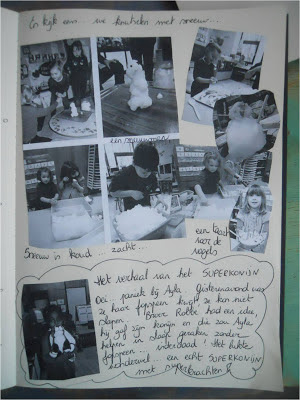 En kijk eens... we knutselen met sneeuw...
een sneeuwman!
een taart voor de vogels
Sneeuw is koud... zacht...
Het verhaal van het SUPERKONIJN
Oei... paniek bij Ayla. Gisterenavond was
ze haar fopspeen kwijt en ze kon niet
slapen. Broer Robbe had een idee,
hij gaf zijn konijn en die zou Ayla
helpen in slaap geraken zonder
fopspeen... inderdaad! Het lukte
wonderwel... een echt SUPERKONIJN
met superkrachten!